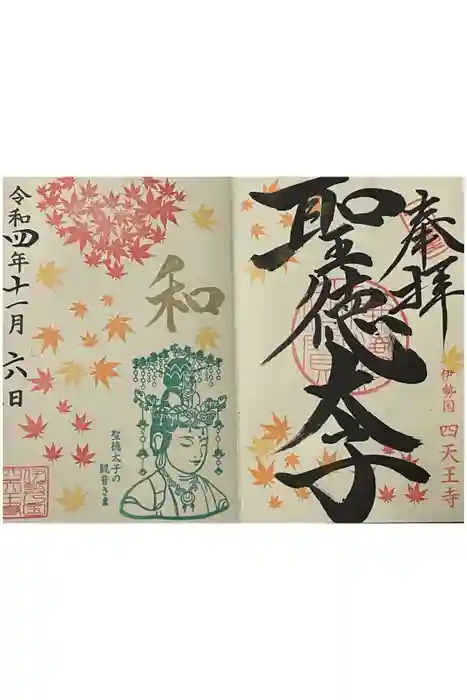 奉拝
伊勢国 四天王寺
聖徳太子
和
聖徳太子の
観音さま
令和四年十一月六日